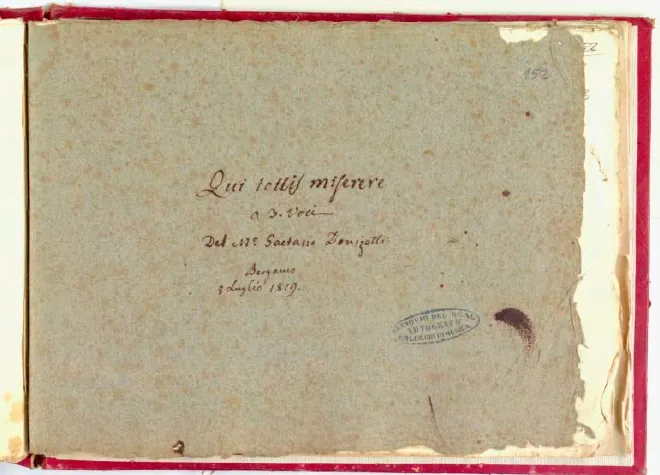 152
Qui tollis miserere
a 3. Voci
Del M.º Gaetano Donizetti
Bergamo
3 Luglio 1819.
ARCHIVIO DEL REAL
AUTOGRAFO
COLLEGIO DI MUSICA